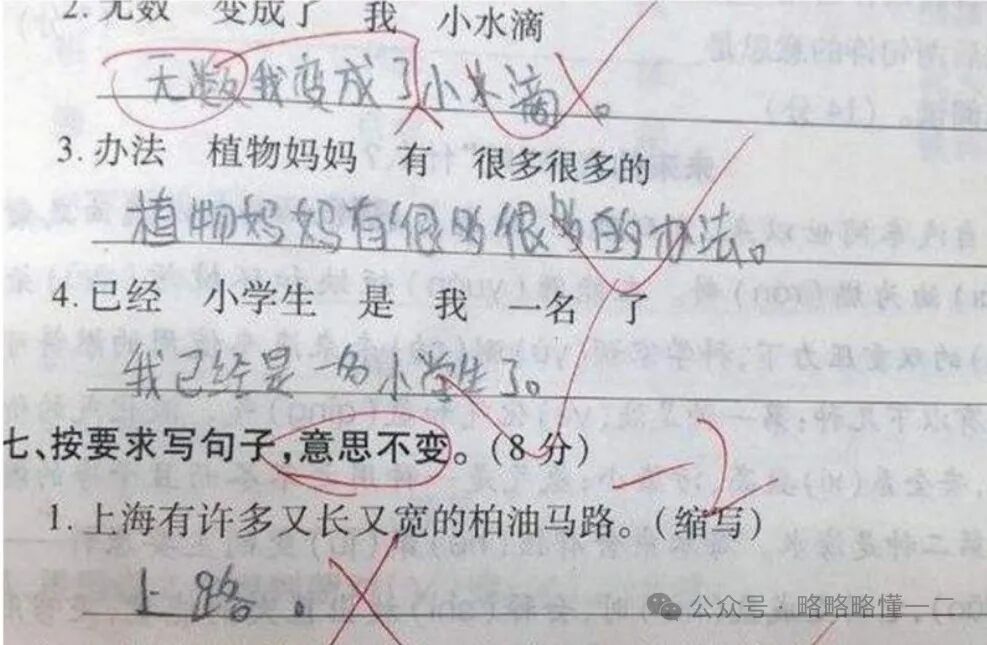 2. 无数 变成了 我 小水滴
无数我变成了小水滴。
3. 办法 植物妈妈 有 很多很多的
植物妈妈有很多很多的办法。
4. 已经 小学生 是 我 一名 了
我已经是一名小学生了。
七、按要求写句子,意思不变。(8分)
-2
1. 上海有许多又长又宽的柏油马路。(缩写)
上路。
公众号·略略略懂一二